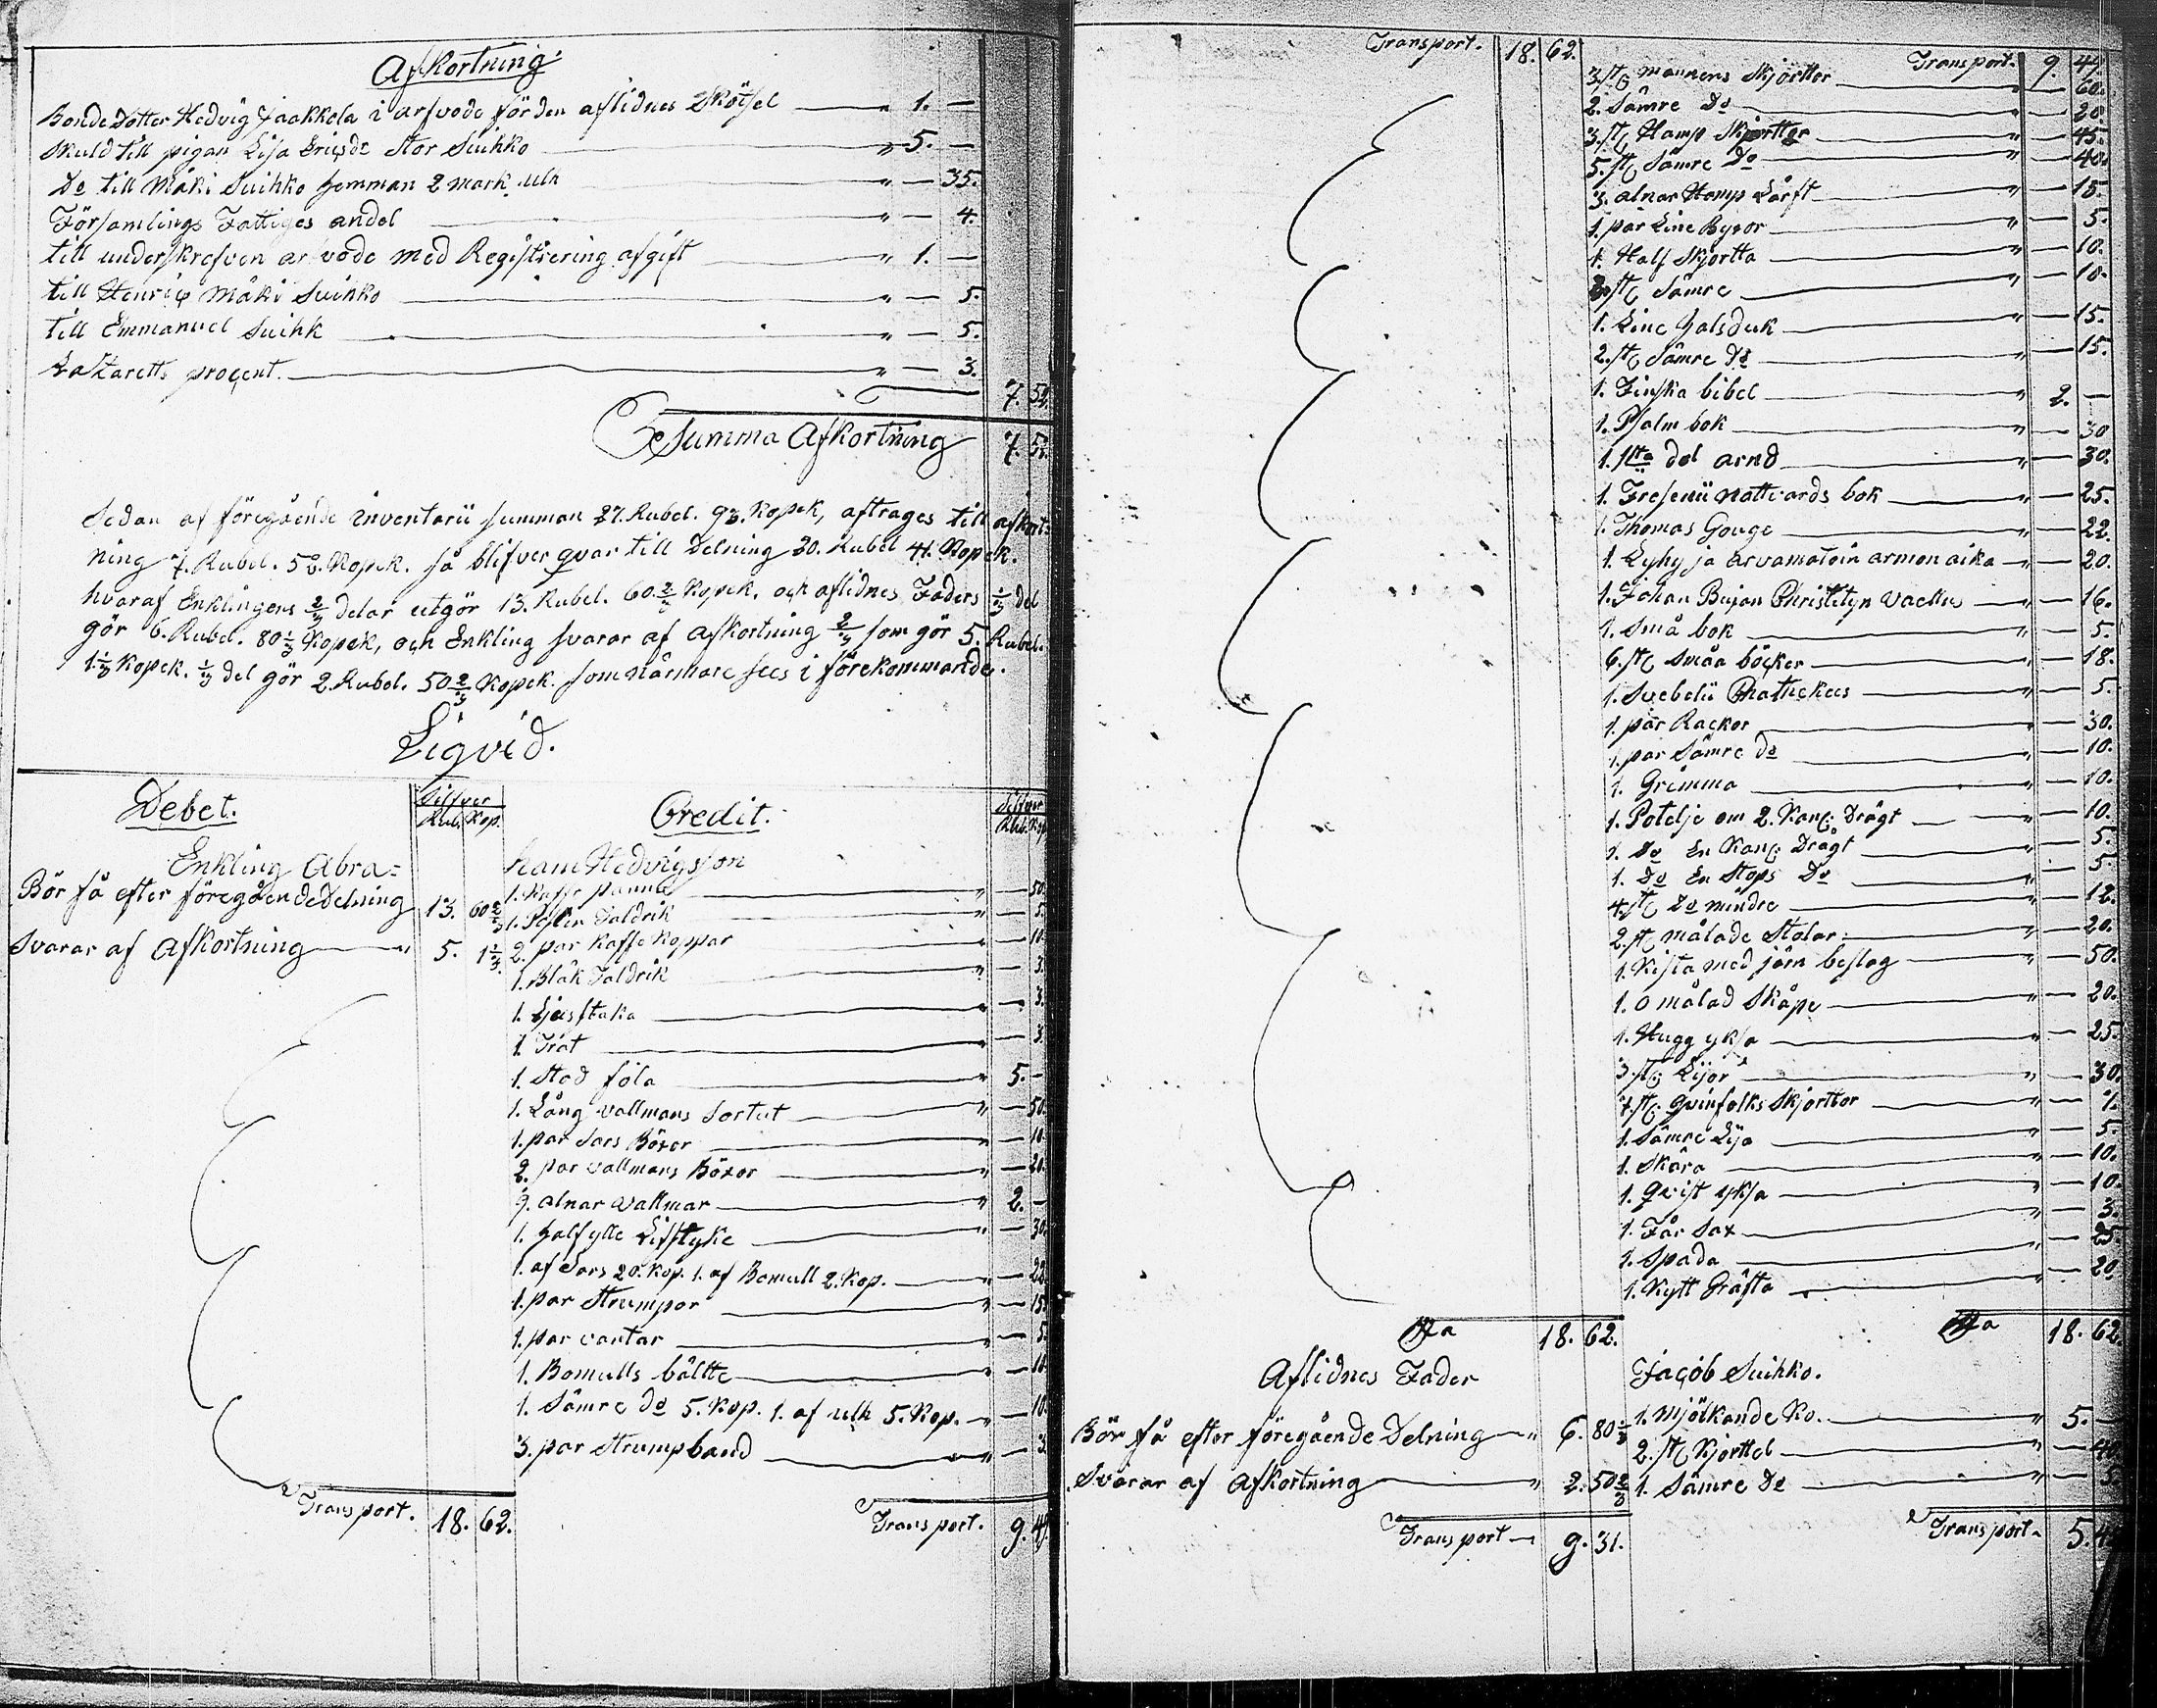 Afkortning
Bonde Dotter Hedvig Jaakkola i arfvode för den aflidnes Skötsel " 1. —
Skuld till pigan Lisa Ericsdr Stor Suihko " 5. —
Do till Mäki Suihko hemman 2 mark ull " — 35.
Församlings Fattiges andel " — 4.
till underskrefven arvode med Registrering afgift " 1. —
till Henric Mäki Suihko " — 5.
till Emmanuel Suihk " — 5.
Lazaretts procent. " — 3.
7. 52.
Summa Afkortning 7. 52.
Sedan af föregående inventarii summan 27. Rubel. 93. Kopek, aftrages till afkort=
ning 7. Rubel. 52. Kopek. så blifver qvar till Delning 20. Rubel 41. Kopek.
hvaraf Enklingens 2/3 delar utgör 13. Rubel. 60 2/3 Kopek, och aflidnes Faders 1/3 del
gör 6. Rubel. 80 1/3 Kopek, och Enkling svarar af afkortning 2/3 som gör 5. Rubel.
1 1/3 Kopek. 1/3 del gör 2. Rubel. 50 2/3 Kopek. som närmare sees i förekommande.
Liqvid.
Debet. Silfver Rub. Kop.
Enkling Abra=
Bör få efter föregående Delning 13. 60 2/3
Svarar af Afkortning " 5. 1 1/3
Transport. 18. 62.
Credit. Silfver Rub. Kop.
ham Hedvigsson
1. Kaffe panna " — 50.
1. Poslin Taldrik " — 5.
2. par Kaffe Koppar " — 10
1. Bläk Taldrik " — 3.
1. Ljusstaka " — 3.
1. Trat " — 3.
1. Stod föla " 5. —
1. Lång vallmans Sortut " — 50.
1. par Sars Böxor " — 10.
2. par vallmans Böxor " — 20.
9. alnar vallmar " 2. —
1. halfylle Lifstyke " — 30.
1. af Sars 20. Kop. 1. af Bomull 2. Kop. " — 22
1. par Strumpor " — 15.
1. par vantar " — 5.
1. Bomulls bältte " — 10
1. Sämre Do 5. Kop. 1. af ulh 5. Kop. " — 10.
3. par Strumpband " — 3.
Transport. 9. 49.
Transport. 18. 62.
Transport. 9. 49.
3. st mannens Skjorttor " — 60.
2. Sämre Do " — 20.
3. st Hamp Skjorttor " — 45.
5. st Sämre Do " — 40.
3. alnar Hamp Lärft " — 15.
1. par Line Byxor " — 5.
1. Half Skjortta " — 10.
2. st Sämre " — 10.
1. Line halsduk " — 15.
2. st Sämre Do " — 15.
1. Finska bibel " 2. —
1. Psalm bok " — 30
1. 1sta del arnd " — 30.
1. Fresenii Nattvards bok " — 25.
1. Thomas Gouge " — 22.
1. Lyhy ja arvamatoin armon aika " — 20.
1. Johan Bujan Christityn vaellus " — 16.
1. Små bok " — 5.
6. st Småa böcker " — 18.
1. Svebelii Chathekees " — 5.
1. pär Rackor " — 30.
1. par Sämre Do " — 10.
1. Grimma " — 10.
1. Potelje om 2. Kan. Drägt " — 10.
1. Do En Kan. Drägt " — 5.
1. Do En Stops Do " — 5.
4. st Do mindre " — 12.
2. st målade Stolar " — 20.
1. Kista med järn beslag " — 50.
1. o målad Skåpe " — 20.
1. Hugg yksa " — 25.
3. st Lijor " — 30.
7. st qvinfolks Skjorttor " — 7.
1. Sämre Lija " — 5.
1. Skära " — 10.
1. Qvist yksa " — 10.
1. Får Sax " — 3.
1. Spada " — 25.
1. Kytt Gräfta — 20.
Sa 18. 62.
Sa 18. 62
Aflidnes Fader
Bör få efter föregående Delning " 6. 80 1/3
Svarar af Afkortning " 2. 50 2/3
Transport 9. 31.
Jacob Suihko.
1. Mjölkande Ko. " 5. —
2. st Kjorttel " — 40
1. Sämre Do " — 5
Transport 5. 45